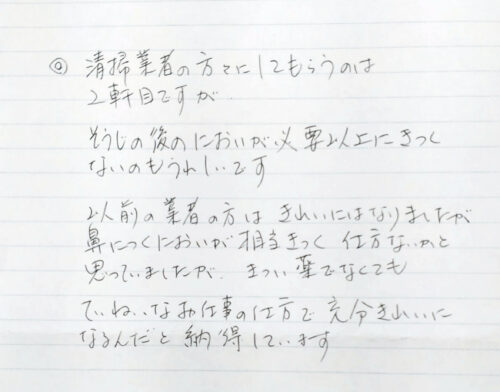 ◎ 清掃業者の方々にしてもらうのは
2軒目ですが
そうじの後のにおいが必要以上にきつく
ないのもうれしいです
以前の業者の方は きれいにはなりましたが
鼻につくにおいが相当きつく 仕方ないかと
思っていましたが、きつい薬でなくても
ていねいなお仕事の仕方で充分きれいに
なるんだと納得しています